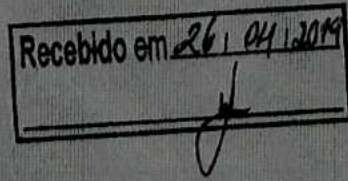 Recebido em 26 / 04 / 2019